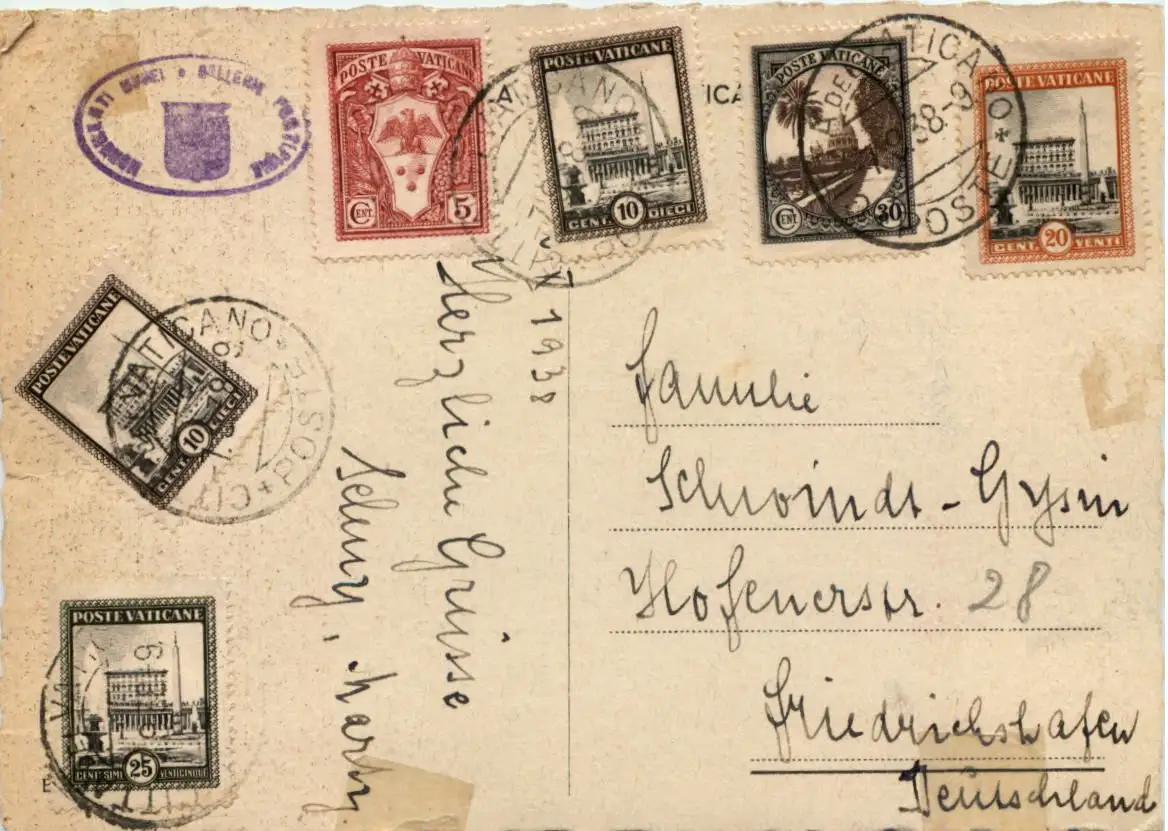 POSTE VATICANE
CENT. 5
POSTE VATICANE
CENT. 10 DIECI
POSTE VATICANE
CENT. 30
POSTE VATICANE
CENT. 20 VENTI
VATICANO
POSTE
POSTE VATICANE
CENT. 10 DIECI
VATICANO POSTE
CITTÀ
POSTE VATICANE
CENTESIMI 25 VENTICINQUE
1938
Herzliche Grüsse
Familie
Schwindt-Gysin
Hofenerstr. 28
Friedrichshafen
Deutschland